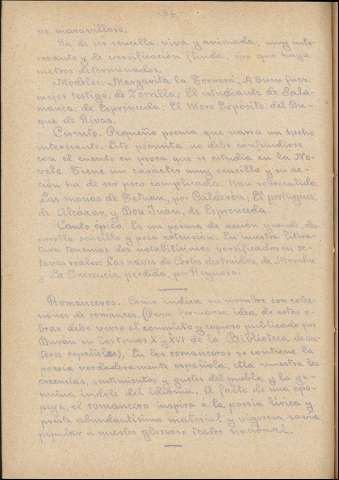 no maravilloso.
Ha de ser sencilla, viva y animada, muy inte-
resante y la versificación linda, sin que haya
metros determinados.
Modelos: Margarita la Tornera, A buen juez
mejor testigo, de Zorrilla; El estudiante de Sala-
manca, de Espronceda; El Moro Expósito, del Du-
que de Rivas.
Cuento. Pequeño poema que narra un hecho
interesante. Este poemita no debe confundirse
con el cuento en prosa que se estudia en la No-
vela. Tiene un carácter muy sencillo y su ac-
ción ha de ser poco complicada. Han sobresalido:
Las monas de Tetuán, por Calderón; El portugués,
de Alcázar, y Don Juan, de Espronceda.
Canto épico. Es un poema de acción grande, de-
sarrollo sencillo y poca extensión. En nuestra litera-
tura tenemos dos notabilísimos, versificados en oc-
tavas reales: Las naves de Cortés destruidas, de Moratín
y La Inocencia perdida, por Reynoso.
Romanceros. Como indica su nombre son colec-
ciones de romances. (Para formarse idea de estas o-
bras debe verse el completo y copioso publicado por
Durán en los tomos X y XVI de la Biblioteca de au-
tores españoles). En los romanceros se contiene la
poesía verdaderamente española, ella muestra las
creencias, sentimientos y gustos del pueblo y la ge-
nuina índole del idioma. A falta de una epo-
peya, el romancero inspira a la poesía lírica y
presta abundantísimo material y vigorosa savia
popular a nuestro glorioso teatro nacional.